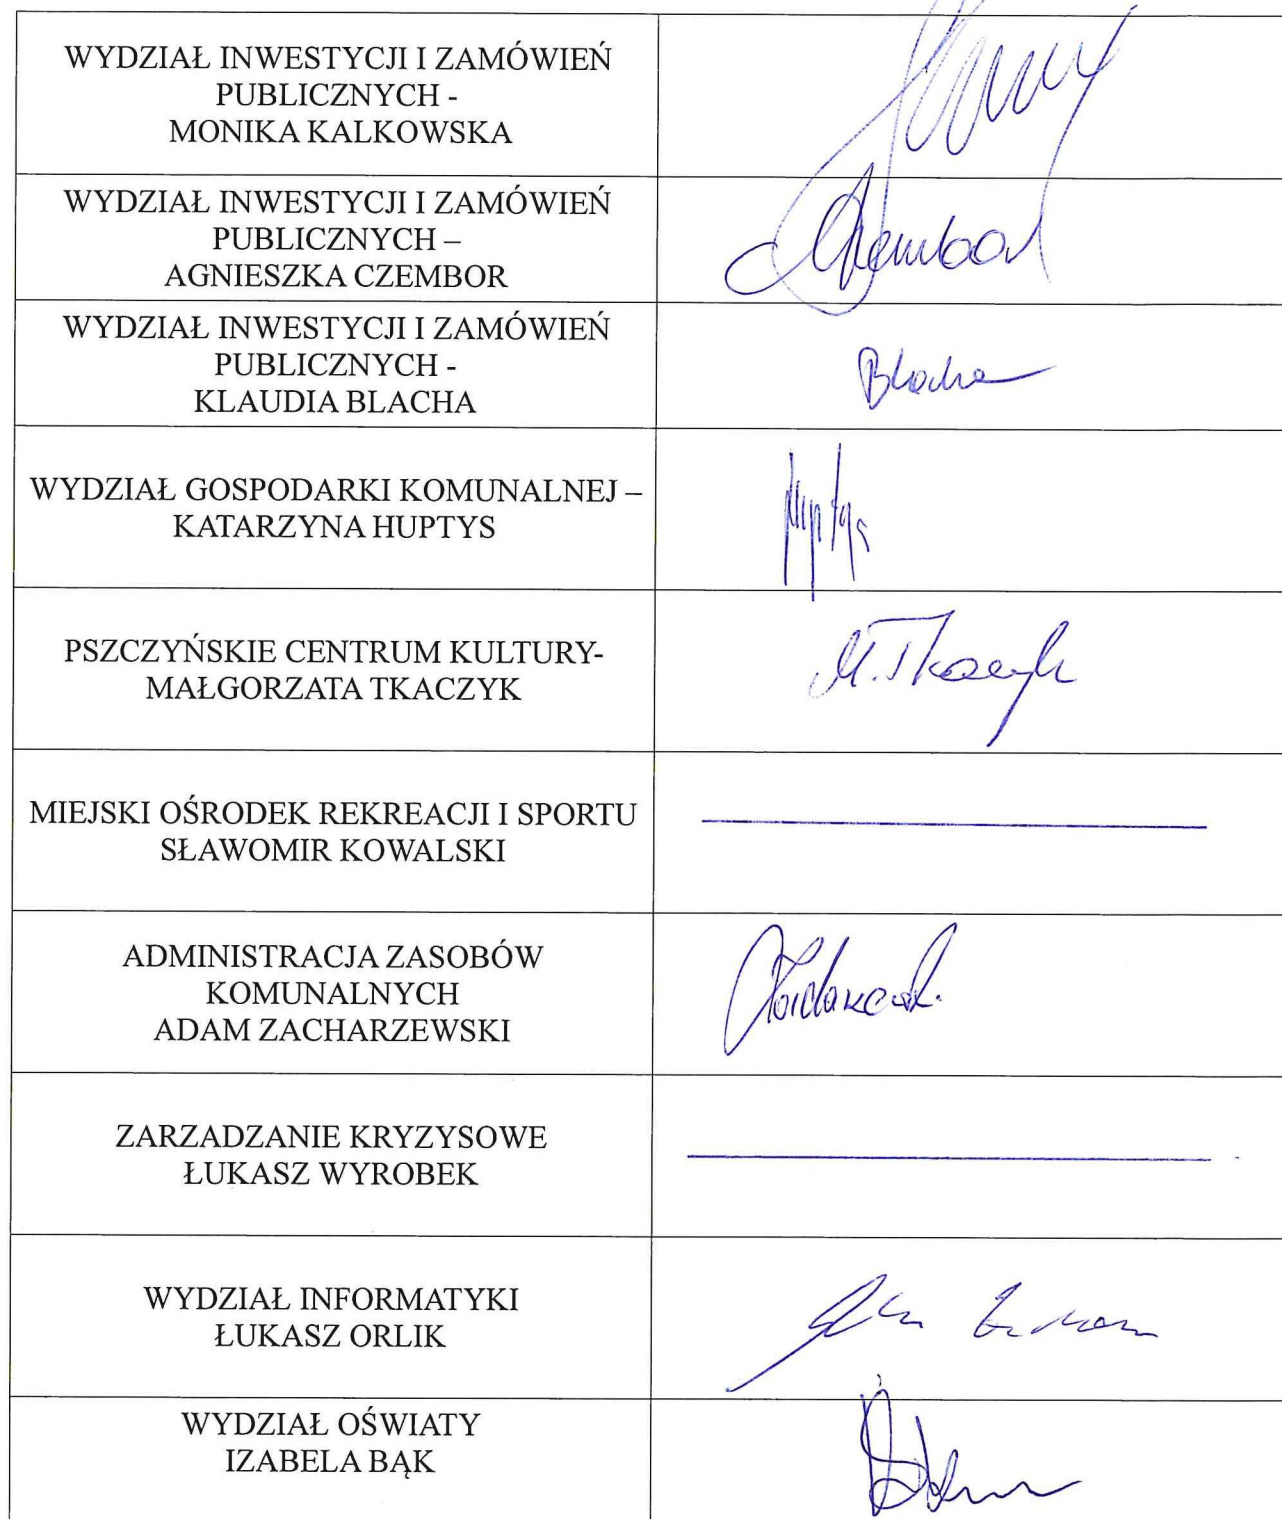 WYDZIAŁ INWESTYCJI I ZAMÓWIEŃ
PUBLICZNYCH -
MONIKA KALKOWSKA
WYDZIAŁ INWESTYCJI I ZAMÓWIEŃ
PUBLICZNYCH –
AGNIESZKA CZEMBOR
Czembor
WYDZIAŁ INWESTYCJI I ZAMÓWIEŃ
PUBLICZNYCH -
KLAUDIA BLACHA
Blacha
WYDZIAŁ GOSPODARKI KOMUNALNEJ –
KATARZYNA HUPTYS
Huptys
PSZCZYŃSKIE CENTRUM KULTURY-
MAŁGORZATA TKACZYK
M. Tkaczyk
MIEJSKI OŚRODEK REKREACJI I SPORTU
SŁAWOMIR KOWALSKI
ADMINISTRACJA ZASOBÓW
KOMUNALNYCH
ADAM ZACHARZEWSKI
ZARZADZANIE KRYZYSOWE
ŁUKASZ WYROBEK
WYDZIAŁ INFORMATYKI
ŁUKASZ ORLIK
WYDZIAŁ OŚWIATY
IZABELA BĄK